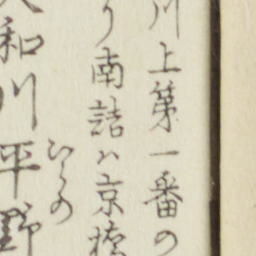 川上第一番の
り南詰ハ京橋
大和川平野
ひらの